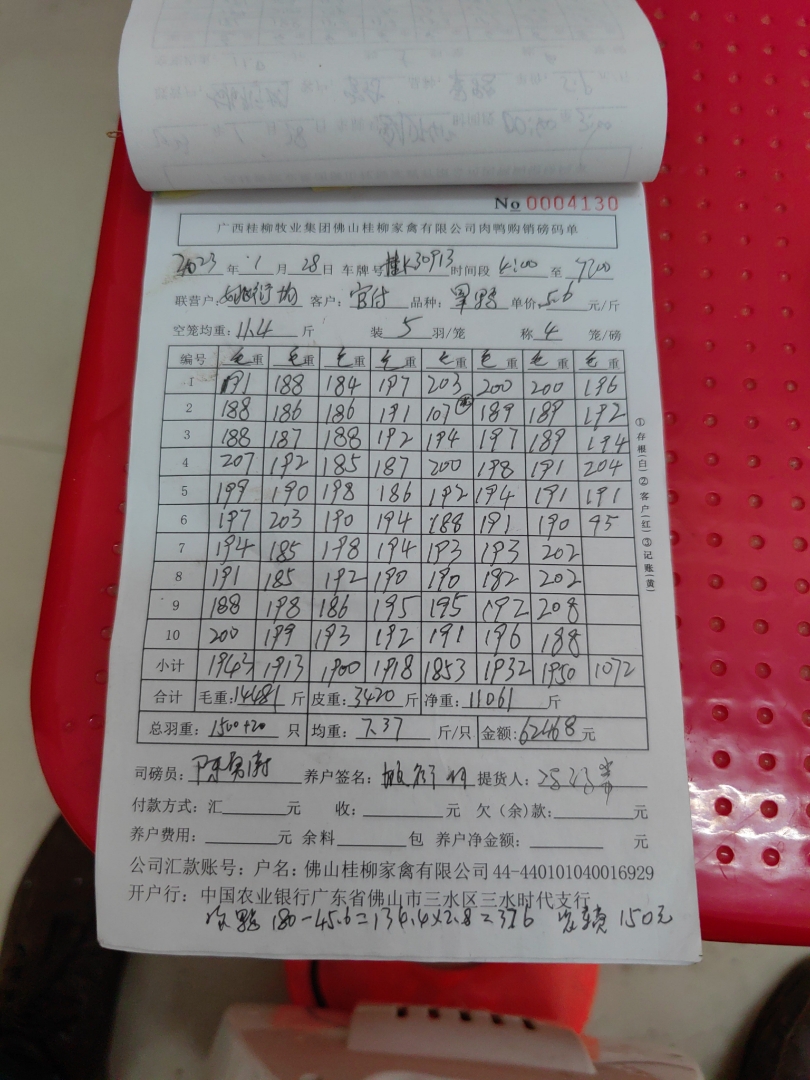 No 0004130
广西桂柳牧业集团佛山桂柳家禽有限公司肉鸭购销磅码单
2023 年 1 月 28 日 车牌号 桂K30913 时间段 4:00 至 7:00
联营户: 客户: 官付 品种: 单价 5.6 元/斤
空笼均重: 11.4 斤 装 5 羽/笼 称 4 笼/磅
编号 毛重 毛重 毛重 毛重 毛重 毛重 毛重 毛重
1 191 188 184 197 203 200 200 196
2 188 186 186 191 107 189 189 192
3 188 187 188 192 194 197 189 194
4 207 192 185 187 200 198 191 204
5 199 190 198 186 192 194 191 191
6 197 203 190 194 188 191 190 95
7 194 185 198 194 193 193 202
8 191 185 192 190 190 182 202
9 188 198 186 195 195 192 208
10 200 199 193 192 191 196 188
小计 1943 1913 1900 1918 1853 1932 1950 1072
合计 毛重: 14481 斤 皮重: 3420 斤 净重: 11061 斤
总羽重: 1500+20 只 均重: 7.37 斤/只 金额: 62468 元
司磅员: 养户签名: 提货人:
付款方式: 汇 元 收: 元 欠(余)款: 元
养户费用: 元 余料 包 养户净金额: 元
公司汇款账号: 户名: 佛山桂柳家禽有限公司 44-440101040016929
开户行: 中国农业银行广东省佛山市三水区三水时代支行
180-45.6=134.4×2.8=376 150元
①存根(白)②客户(红)③记账(黄)